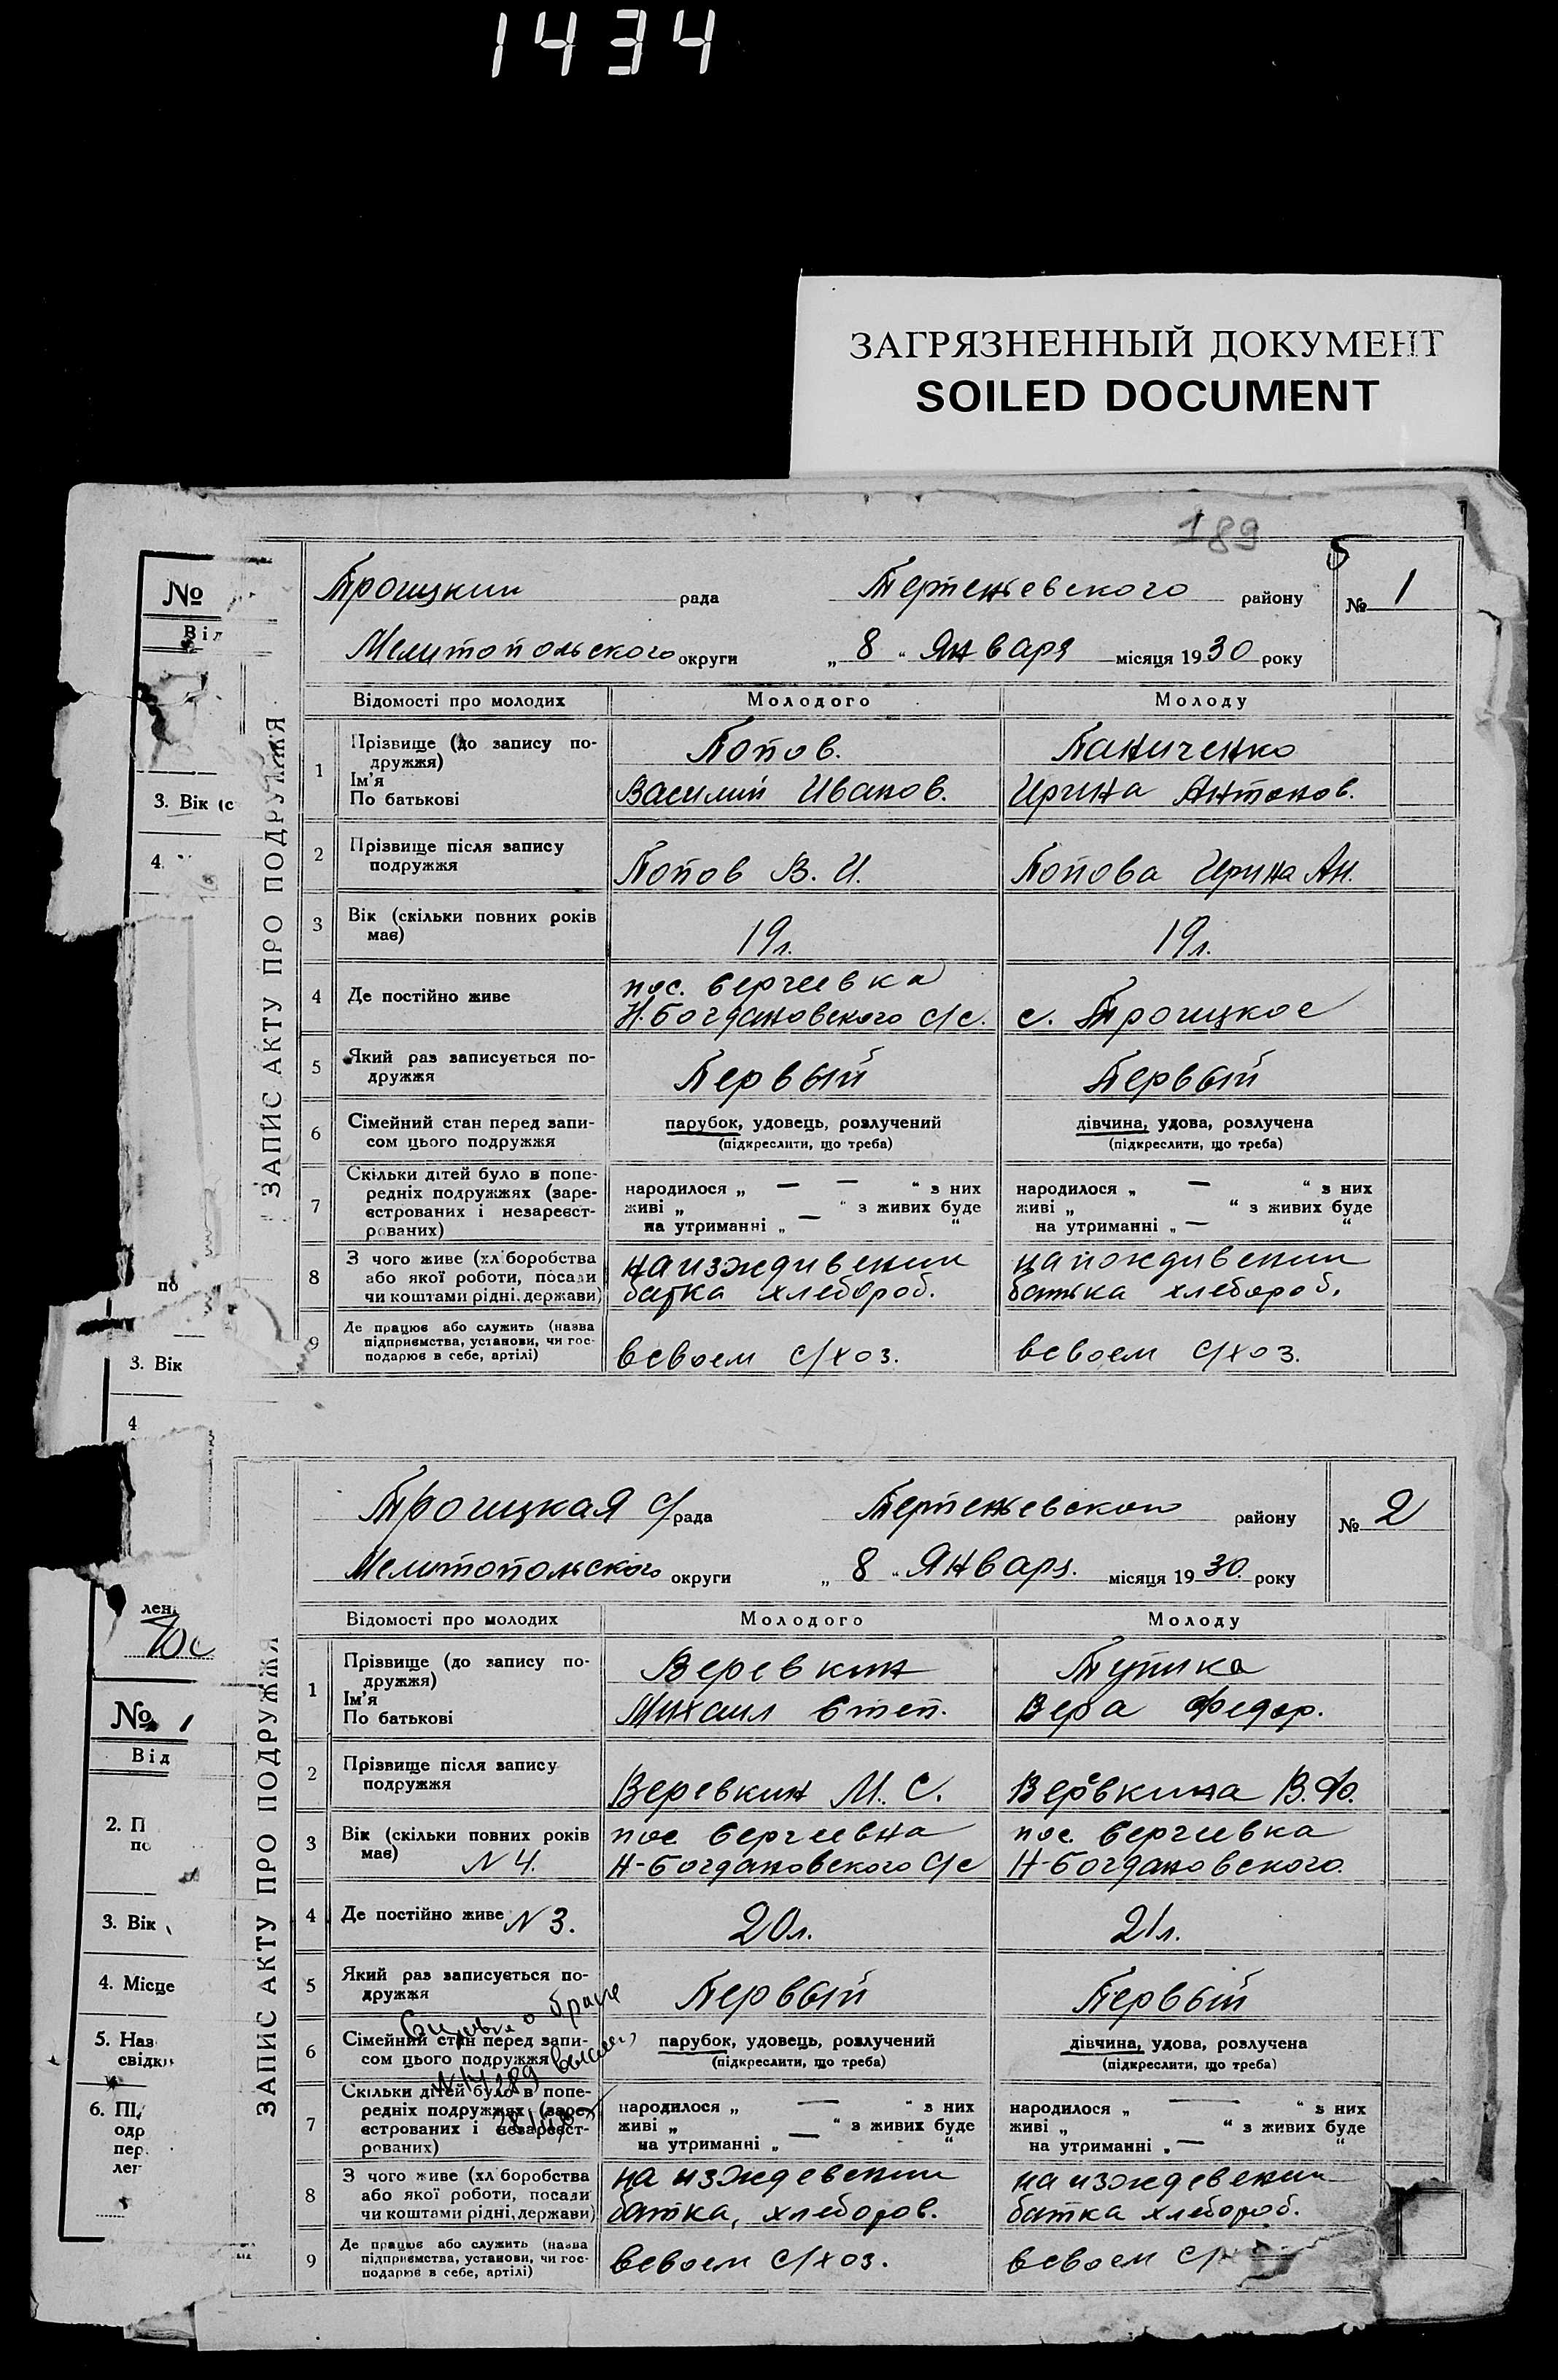 1434
ЗАГРЯЗНЕННЫЙ ДОКУМЕНТ
SOILED DOCUMENT
189
5
Троицкий рада Тертеньевского району № 1
Мелитопольского округи „ 8 “ Января місяця 1930 року
ЗАПИС АКТУ ПРО ПОДРУЖЖЯ
Відомості про молодих Молодого Молоду
1 Прізвище (до запису по-
дружжя) Попов. Паниченко
Ім'я
По батькові Василий Иванов. Ирина Антонов.
2 Прізвище після запису
подружжя Попов В. И. Попова Ирина Ан.
3 Вік (скільки повних років
має) 19 л. 19 л.
4 Де постійно живе пос. Сергеевка
Н. Богдановского с/с. с. Троицкое
5 Який раз записується по-
дружжя Первый Первый
6 Сімейний стан перед запи- парубок, удовець, розлучений дівчина, удова, розлучена
сом цього подружжя (підкреслити, що треба) (підкреслити, що треба)
7 Скільки дітей було в попе-
редніх подружжях (заре- народилося „ — — “ з них народилося „ — “ з них
єстрованих і незареєст- живі „ “ з живих буде живі „ “ з живих буде
рованих) на утриманні „ — “ на утриманні „ — “
8 З чого живе (хліборобства на изждивении
або якої роботи, посади
чи коштами рідні, держави) батка хлебороб. батька хлебороб.
9 Де працює або служить (назва
підприємства, установи, чи гос-
подарює в себе, артілі) всвоем с/хоз. всвоем с/хоз.
Троицкая с/рада Тертеньевской району № 2
Мелитопольского округи „ 8 “ Января. місяця 1930. року
ЗАПИС АКТУ ПРО ПОДРУЖЖЯ
Відомості про молодих Молодого Молоду
1 Прізвище (до запису по-
дружжя) Веревкин Тупика
Ім'я
По батькові Михаил Степ. Вера Федор.
2 Прізвище після запису
подружжя Веревкин М. С. Верёвкина В. Ф.
3 Вік (скільки повних років пос. Сергеевка пос. Сергеевка
має) N 4. Н-Богдановского с/с Н-Богдановского.
4 Де постійно живе N 3. 20 л. 21 л.
5 Який раз записується по-
дружжя Первый Первый
о браке
6 Сімейний стан перед запи- парубок, удовець, розлучений дівчина, удова, розлучена
сом цього подружжя (підкреслити, що треба) (підкреслити, що треба)
7 Скільки дітей було в попе-
редніх подружжях (заре- народилося „ — “ з них народилося „ — “ з них
єстрованих і незареєст- живі „ “ з живих буде живі „ “ з живих буде
рованих) на утриманні „ — “ на утриманні „ — “
8 З чого живе (хліборобства на изждевении на изждевении
або якої роботи, посади
чи коштами рідні, держави) батка, хлебороб. батка хлебороб.
9 Де працює або служить (назва
підприємства, установи, чи гос-
подарює в себе, артілі) всвоем с/хоз. всвоем с/
№
Від
3. Вік (с
4.
по
3. Вік
4
лен
№ 1
Від
2. П
по
3. Вік
4. Місце
5. Наз
свідк
6. Пі
одр
пер
лег